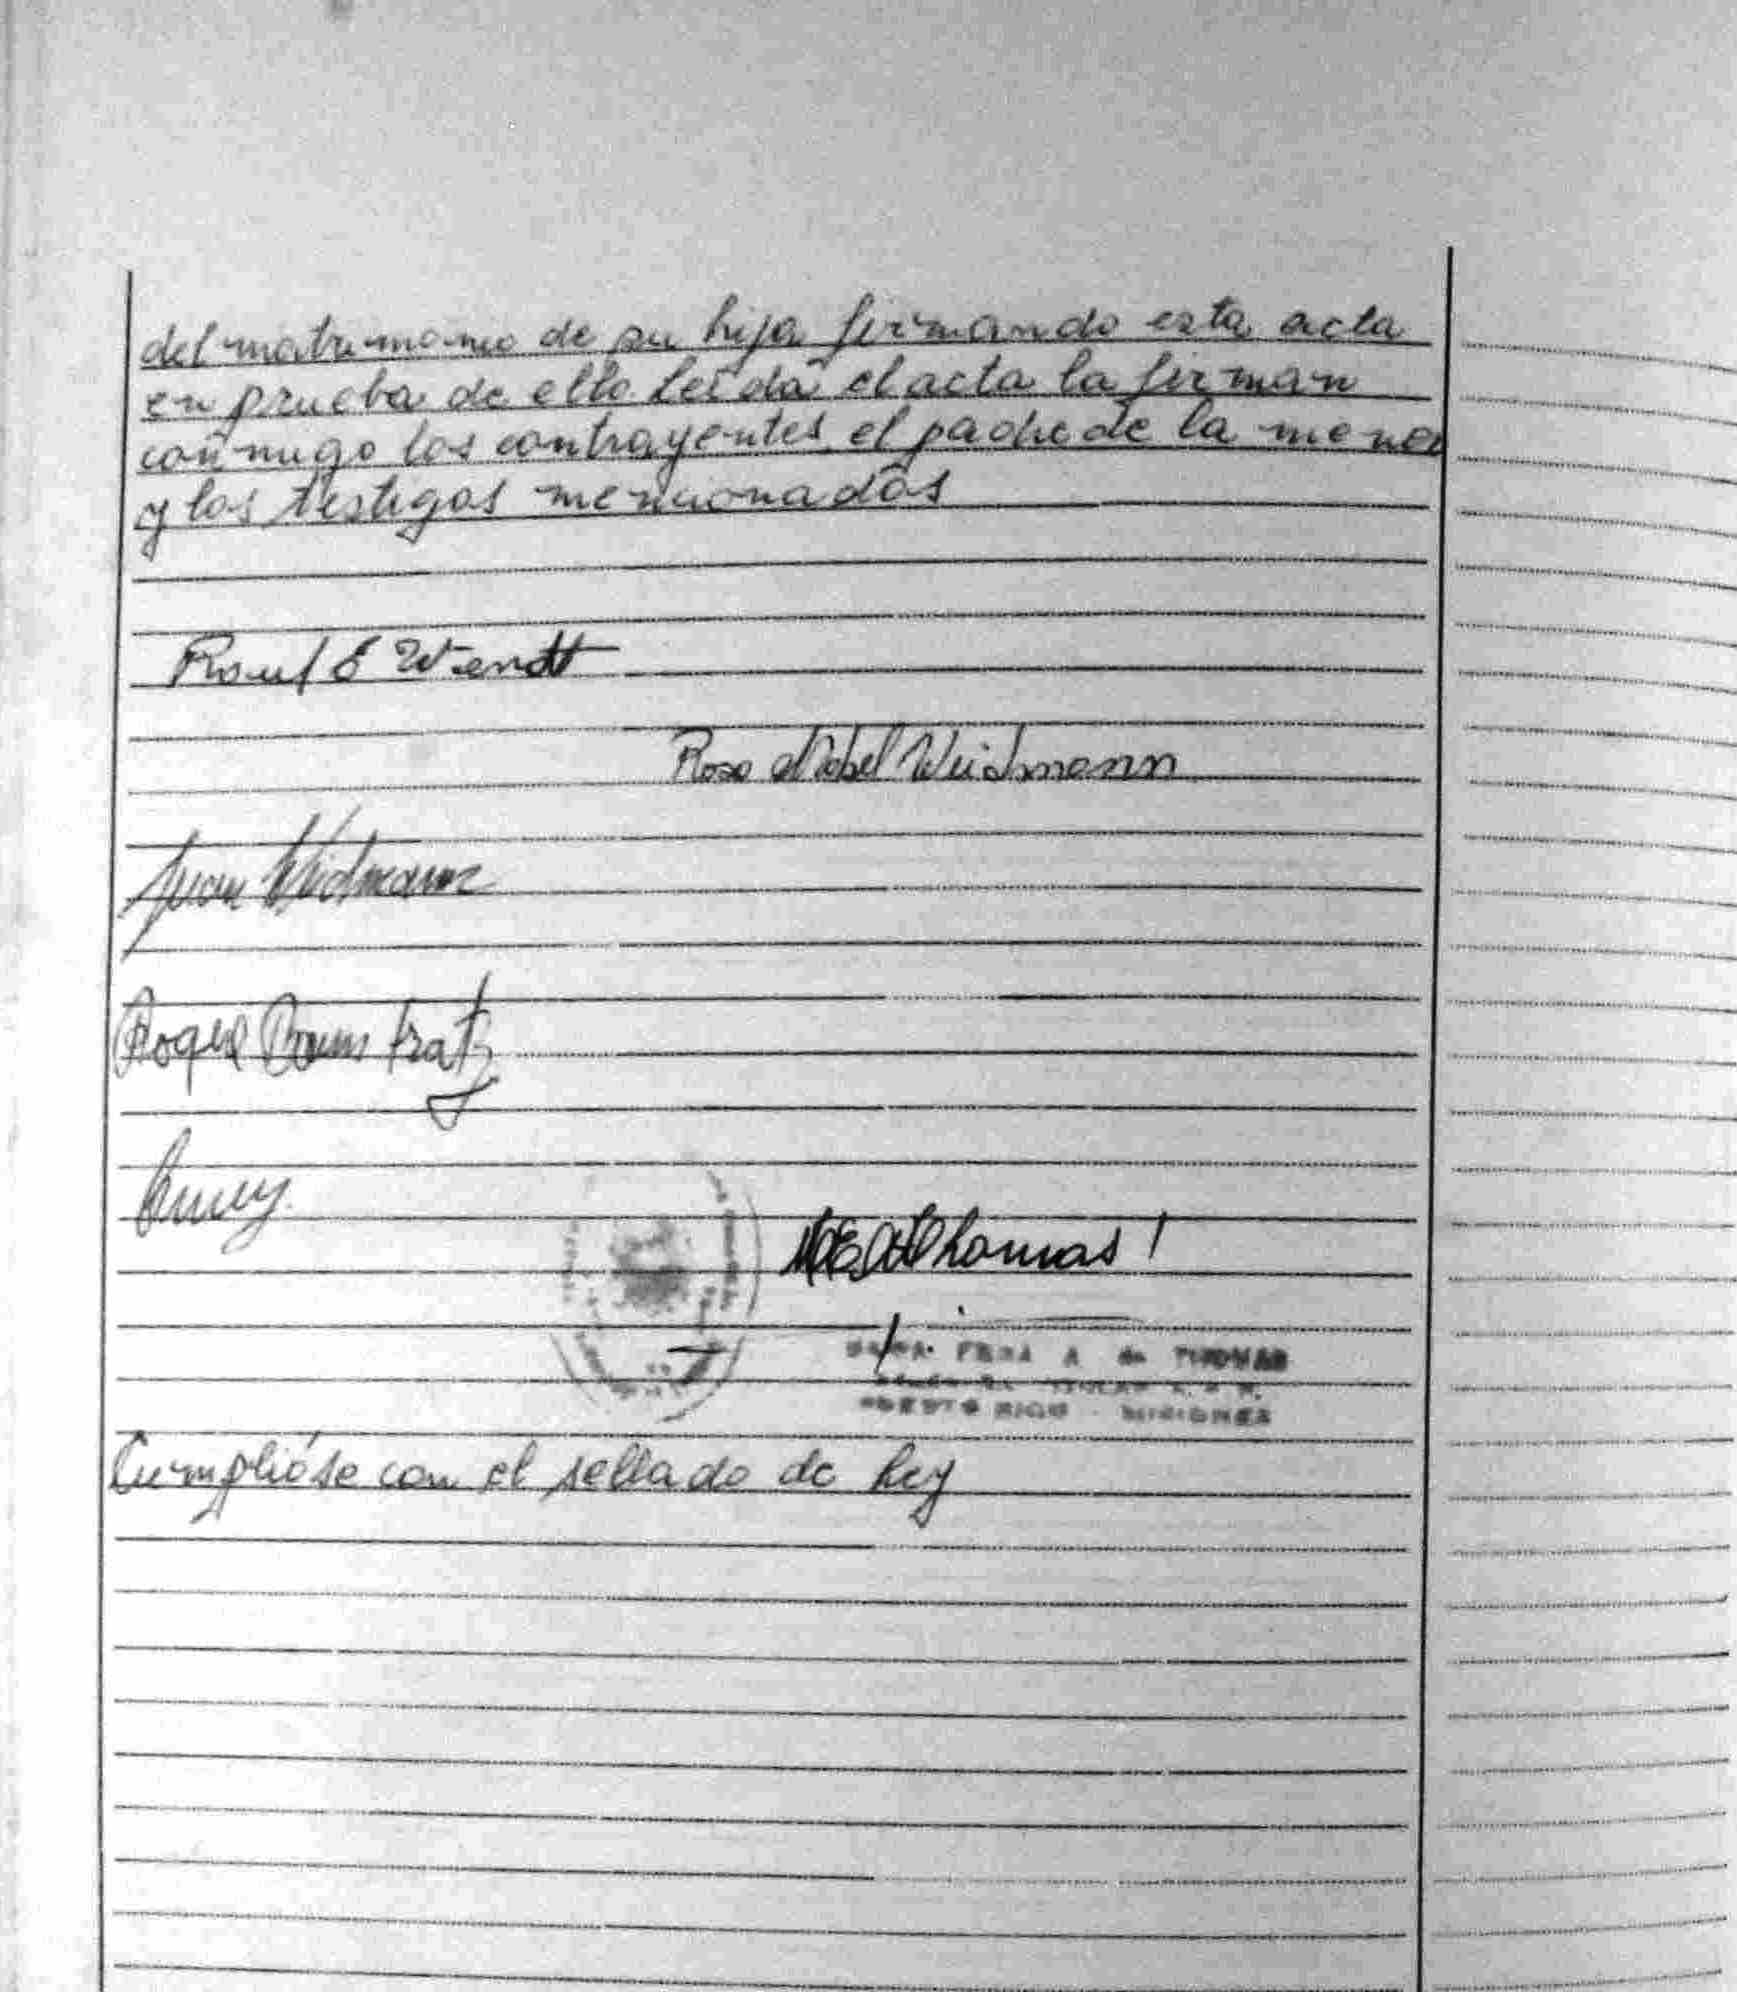 del matrimonio de su hija firmando esta acta
en prueba de ello. Leida el acta la firman
conmigo los contrayentes, el padre de la menor
y los testigos mencionados
Raul E Wendt
Rosa Mabel Weidmann
Juan Weidmann
Roque Baum tratz
Thomas
A de THOMAS
PUERTO RICO - MISIONES
Cumplióse con el sellado de Ley